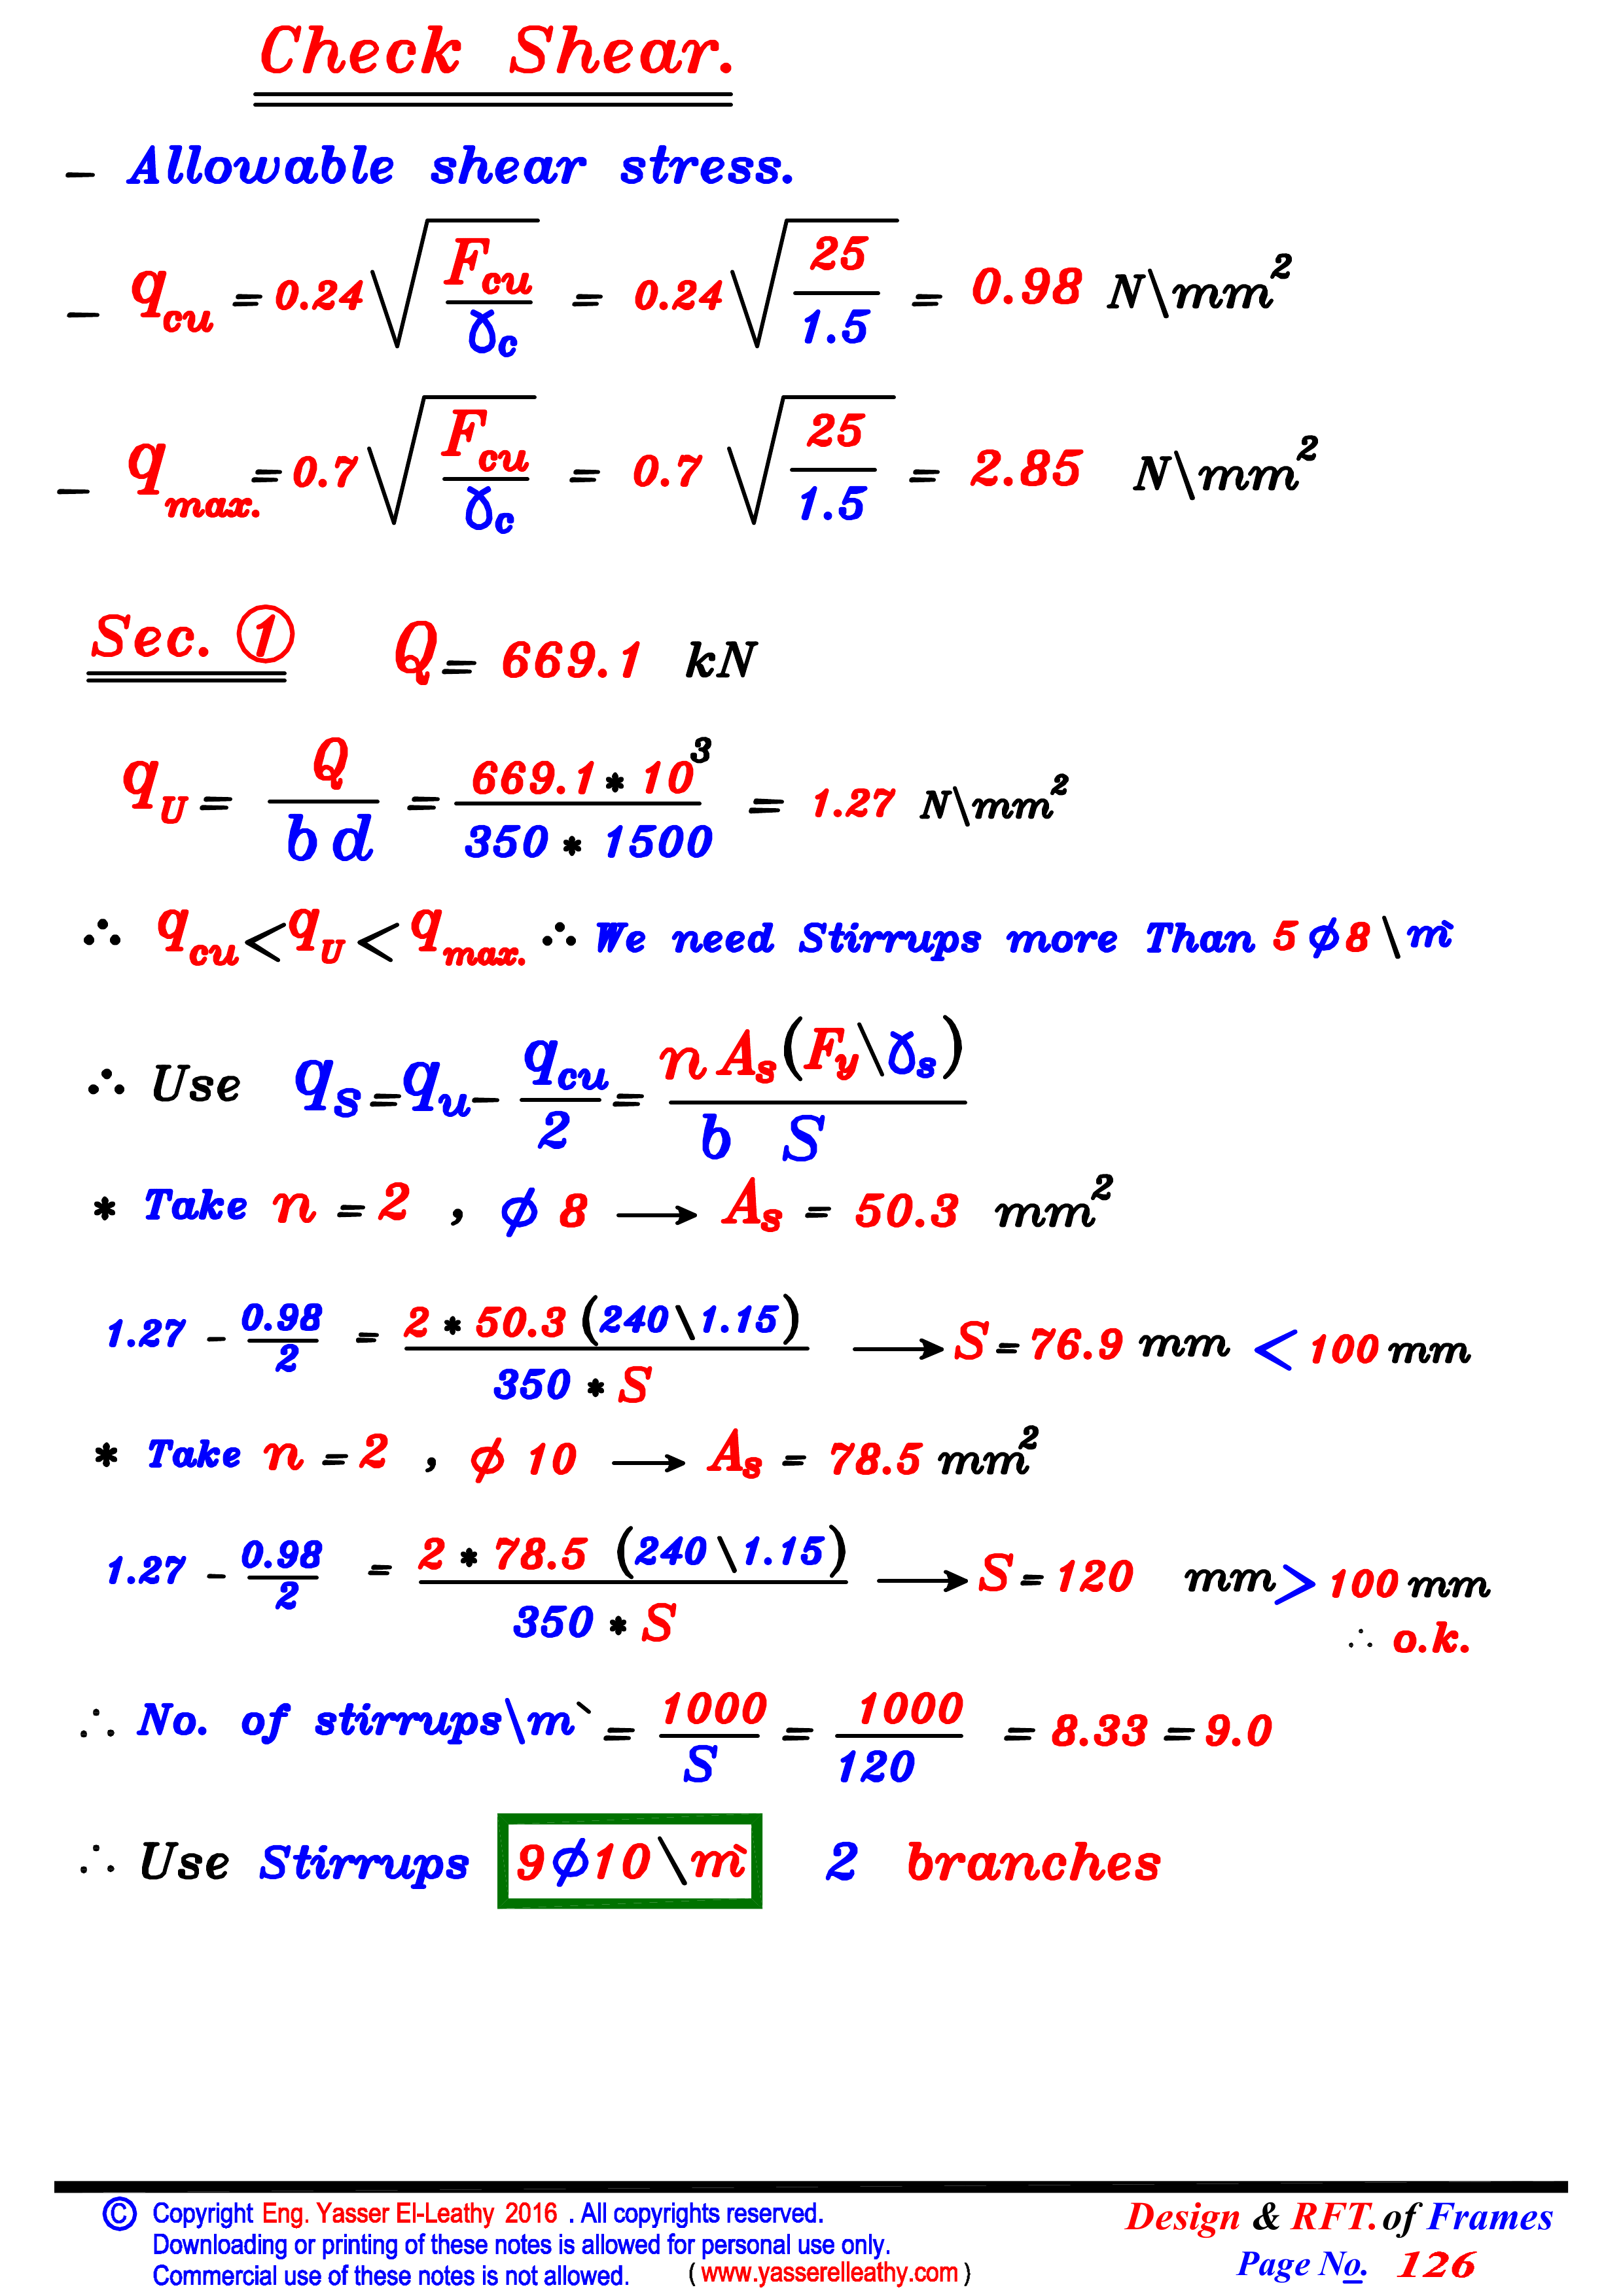 Check Shear.
- Allowable shear stress.
- q_cu = 0.24 √(F_cu / γ_c) = 0.24 √(25 / 1.5) = 0.98 N\mm²
- q_max. = 0.7 √(F_cu / γ_c) = 0.7 √(25 / 1.5) = 2.85 N\mm²
Sec. ① Q = 669.1 kN
q_U = Q / b d = 669.1 * 10³ / 350 * 1500 = 1.27 N\mm²
∴ q_cu < q_U < q_max. ∴ We need Stirrups more Than 5 ϕ 8 \ m`
∴ Use q_s = q_u - q_cu / 2 = n A_s (F_y \ γ_s) / b S
* Take n = 2 , ϕ 8 → A_s = 50.3 mm²
1.27 - 0.98 / 2 = 2 * 50.3 (240 \ 1.15) / 350 * S → S = 76.9 mm < 100 mm
* Take n = 2 , ϕ 10 → A_s = 78.5 mm²
1.27 - 0.98 / 2 = 2 * 78.5 (240 \ 1.15) / 350 * S → S = 120 mm > 100 mm
∴ o.k.
∴ No. of stirrups\m` = 1000 / S = 1000 / 120 = 8.33 = 9.0
∴ Use Stirrups 9 ϕ 10 \ m` 2 branches
© Copyright Eng. Yasser El-Leathy 2016 . All copyrights reserved.
Downloading or printing of these notes is allowed for personal use only.
Commercial use of these notes is not allowed. ( www.yasserelleathy.com )
Design & RFT. of Frames
Page No. 126